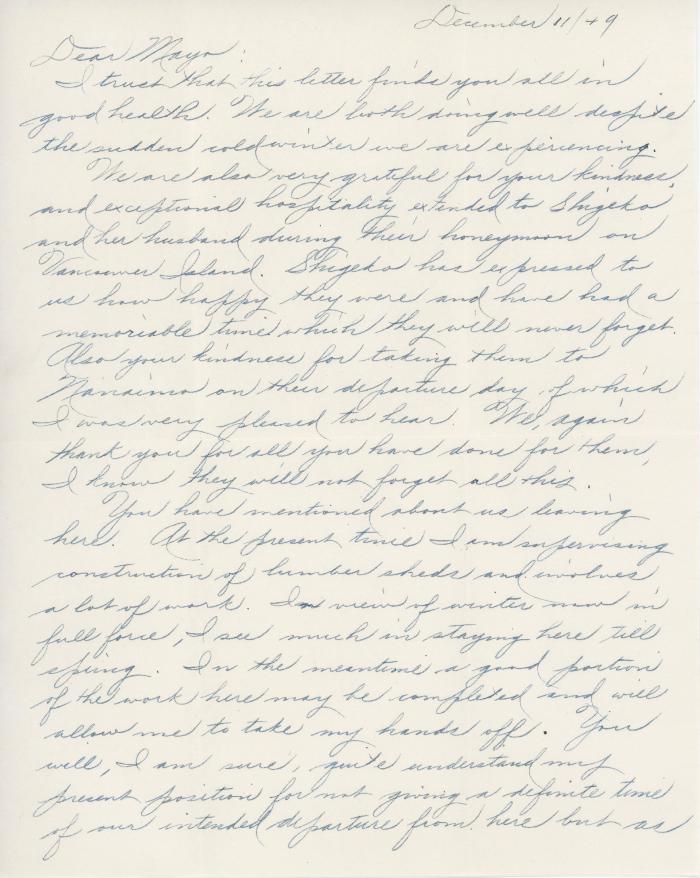 December 11/49
Dear Mayo:
I trust that this letter finds you all in
good health. We are both doing well despite
the sudden cold winter we are experiencing.
We are also very grateful for your kindness,
and exceptional hospitality extended to Shigeko
and her husband during their honeymoon on
Vancouver Island. Shigeko has expressed to
us how happy they were and have had a
memoriable time which they will never forget.
Also your kindness for taking them to
Nanaimo on their departure day, of which
I was very pleased to hear. We, again
thank you for all you have done for them,
I know they will not forget all this.
You have mentioned about us leaving
here. At the present time I am supervising
construction of lumber sheds and involves
a lot of work. In view of winter now in
full force, I see much in staying here till
spring. In the meantime a good portion
of the work here may be completed and will
allow me to take my hands off. You
will, I am sure, quite understand my
present position for not giving a definite time
of our intended departure from here but as